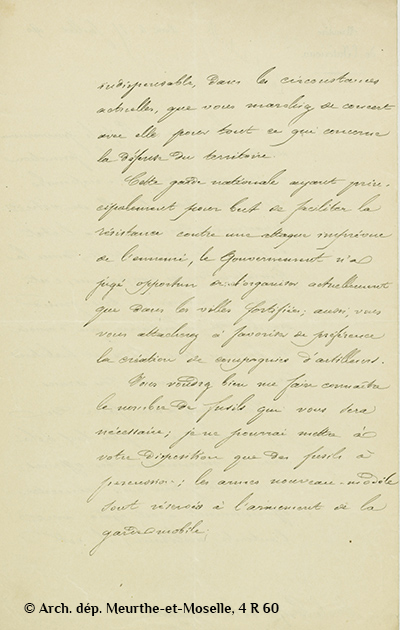 indispensable, dans les circonstances
actuelles, que vous marchiez de concert
avec elle pour tout ce qui concerne
la défense du territoire.
Cette garde nationale ayant prin-
cipalement pour but de faciliter la
résistance contre une attaque imprévue
de l'ennemi, le Gouvernement n'a
jugé opportun de l'organiser actuellement
que dans les villes fortifiées; aussi, vous
vous attacherez à favoriser de préférence
la création de compagnies d'artilleurs.
Vous voudrez bien me faire connaître
le nombre de fusils qui vous sera
nécessaire; je ne pourrai mettre à
votre disposition que des fusils à
percussion; les armes nouveau modèle
sont réservés à l'armement de la
garde mobile.
© Arch. dép. Meurthe-et-Moselle, 4 R 60